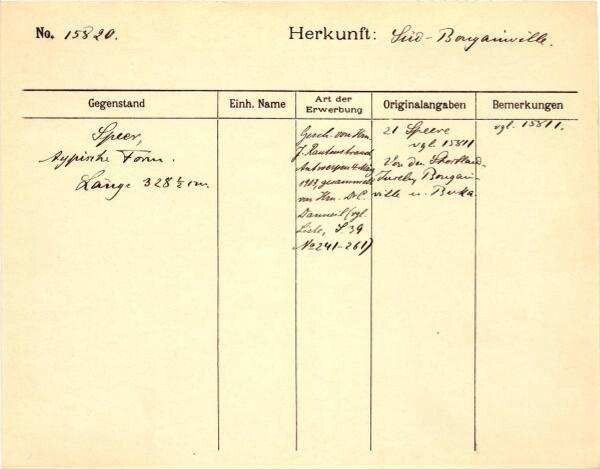 No. 15820.
Herkunft: Süd-Bougainville.
Gegenstand
Einh. Name
Art der Erwerbung
Originalangaben
Bemerkungen
Speer,
typische Form.
Länge 328 ½ cm.
Gesch. von Hrn.
J. Rautenstrauch
Antwerpen 4. März
1907, gesammelt
von Hrn. Dr. C.
Danneil (vgl.
Liste, S 39
No 241-261)
21 Speere
vgl 15811
Von den Shortland
Inseln, Bougain-
ville u. Buka
vgl. 15811.